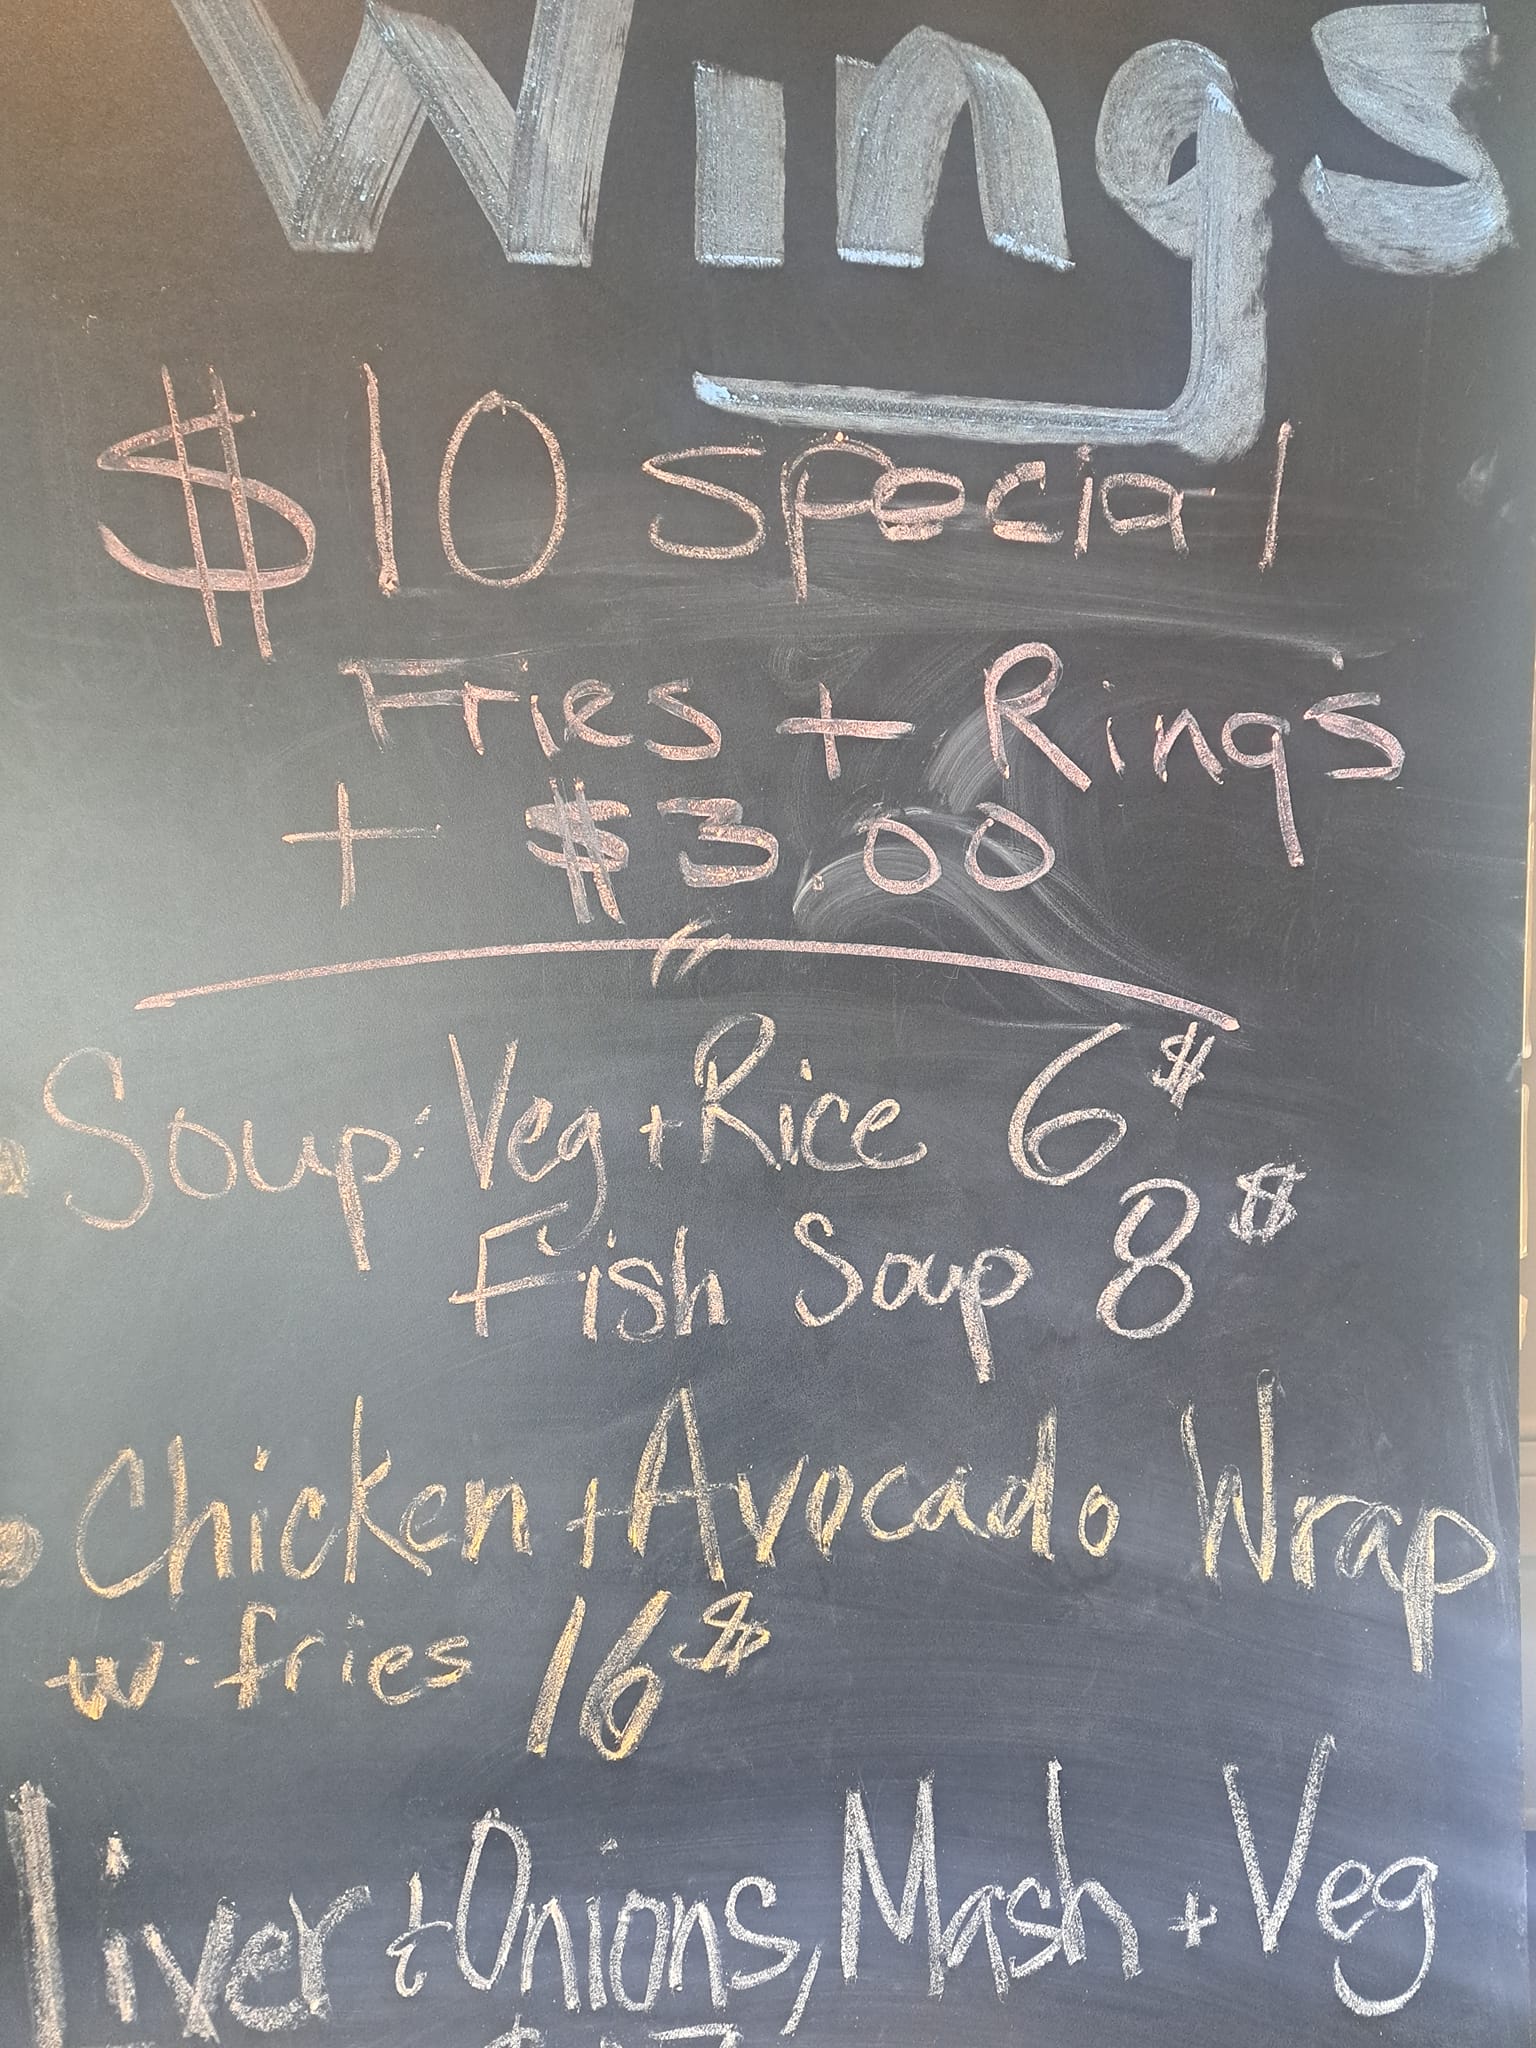 Wings
$10 special
Fries + Rings
+ $3.00
Soup: Veg + Rice 6$
Fish Soup 8$
Chicken + Avocado Wrap
w. fries 16$
Liver & Onions, Mash + Veg